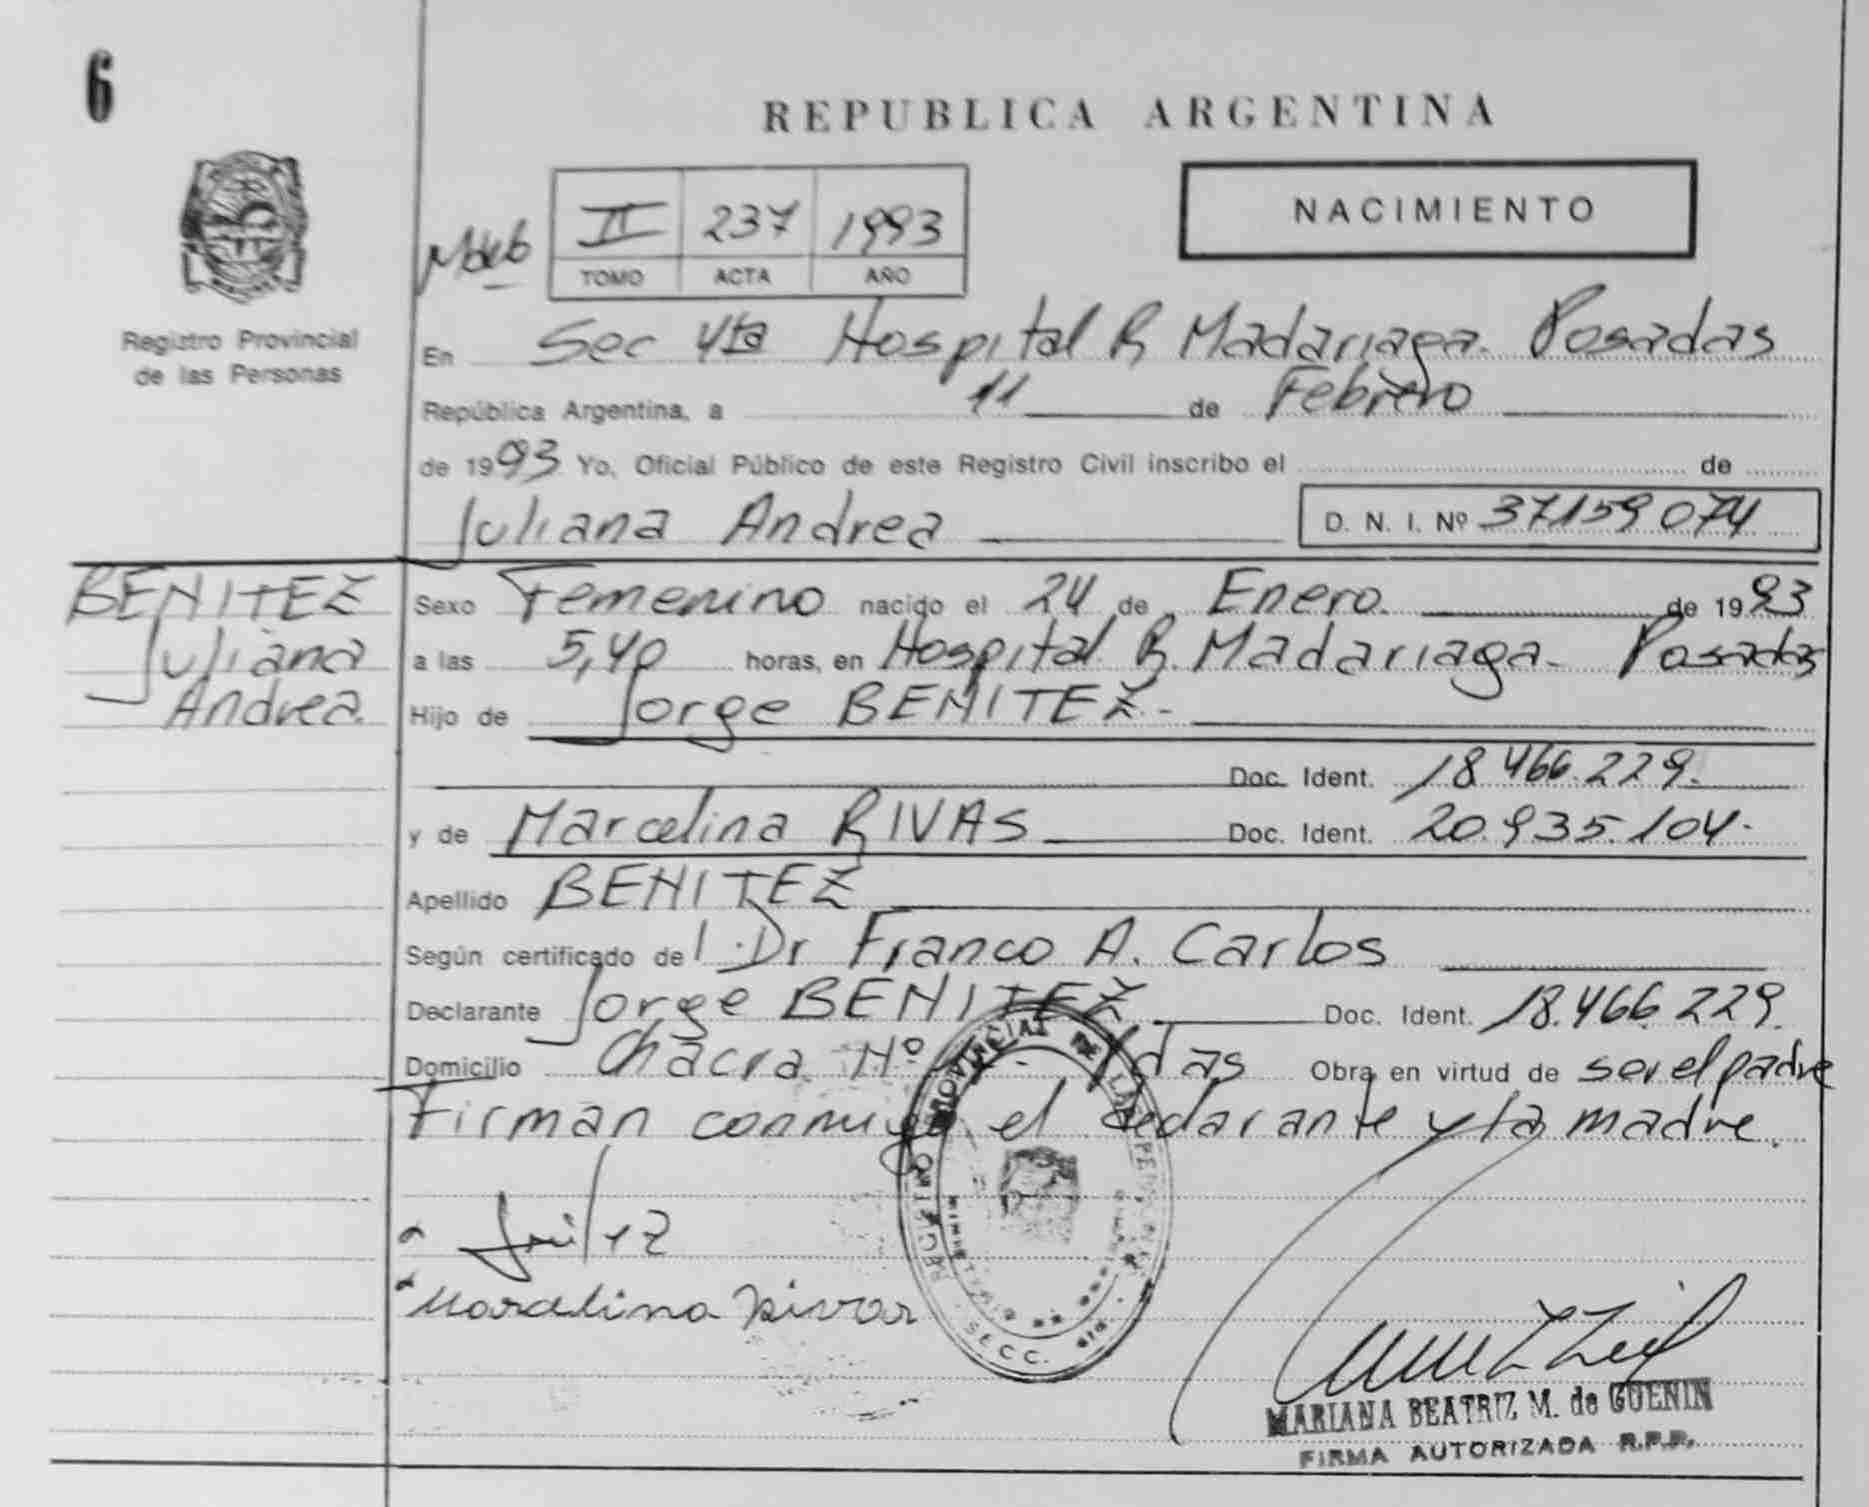 6
REPUBLICA ARGENTINA
NACIMIENTO
II 237 1993
TOMO ACTA AÑO
Registro Provincial
de las Personas
En Sec 4ta Hospital R Madariaga. Posadas
República Argentina, a 11 de Febrero
de 1993 Yo, Oficial Público de este Registro Civil inscribo el de
Juliana Andrea D. N. I. Nº 37159074
BENITEZ
Juliana
Andrea.
Sexo Femenino nacido el 24 de Enero. de 1993
a las 5,40 horas, en Hospital R. Madariaga- Posadas
Hijo de Jorge BENITEZ.-
Doc. Ident. 18.466.229.
y de Marcelina RIVAS Doc. Ident. 20.935.104.
Apellido BENITEZ
Según certificado de l Dr Franco A. Carlos
Declarante Jorge BENITEZ Doc. Ident. 18.466.229.
Domicilio Chacra Nº Pdas Obra en virtud de ser el padre
Firman conmigo el declarante y la madre.
Marcelina Rivas
REGISTRO PROVINCIAL DE LAS PERSONAS
SECC.
MARIANA BEATRIZ M. de GUENIN
FIRMA AUTORIZADA R.P.P.